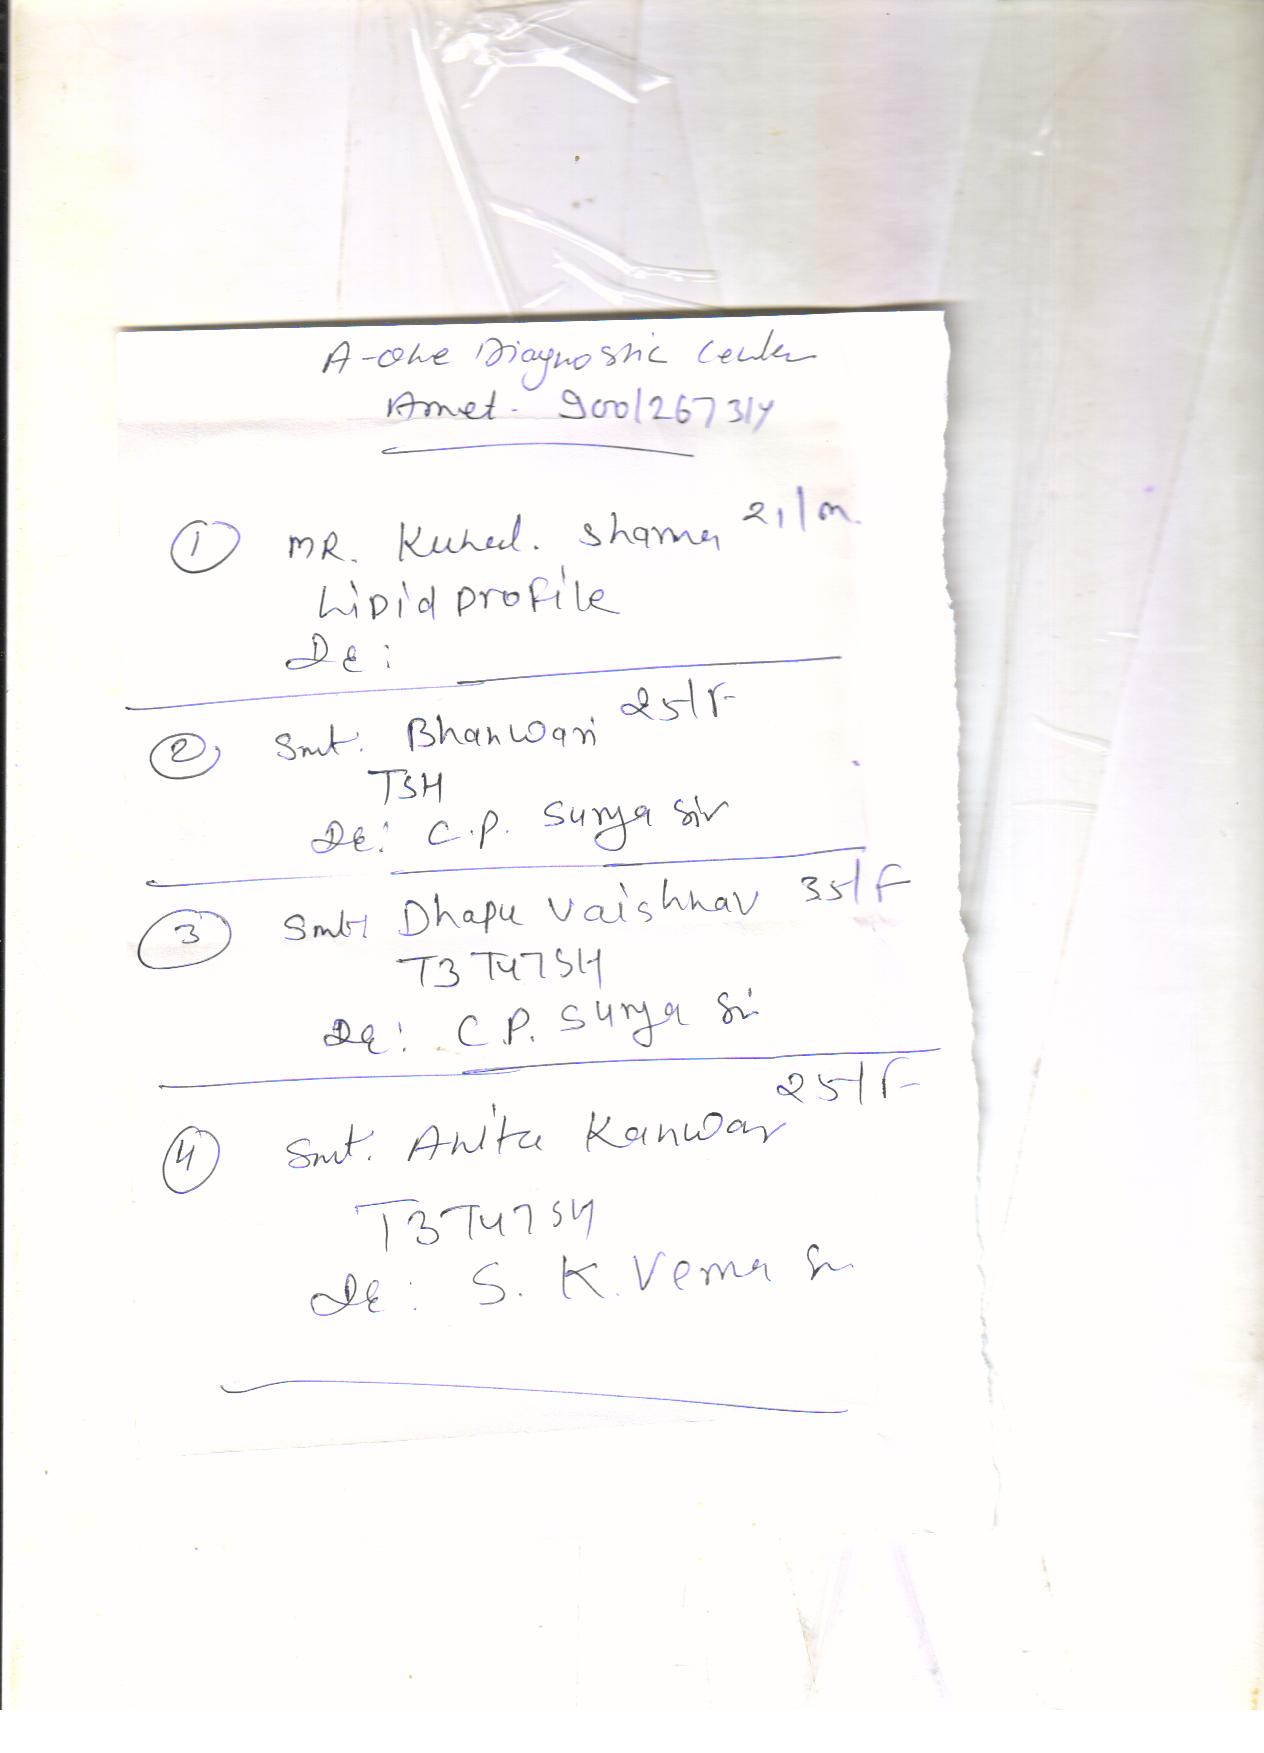 A-one Diagnostic Center
Amet. 9001267314
① MR. Kunal. Sharma 21/m.
Lipid profile
Dr:
② Smt. Bhanwari 25/F
TSH
Dr: C.P. Surya Sir
③ Smt Dhapu Vaishnav 35/F
T3 T4 TSH
Dr: C.P. Surya Sir
④ Smt. Anita Kanwar 25/F
T3 T4 TSH
Dr: S. K. Verma Sr